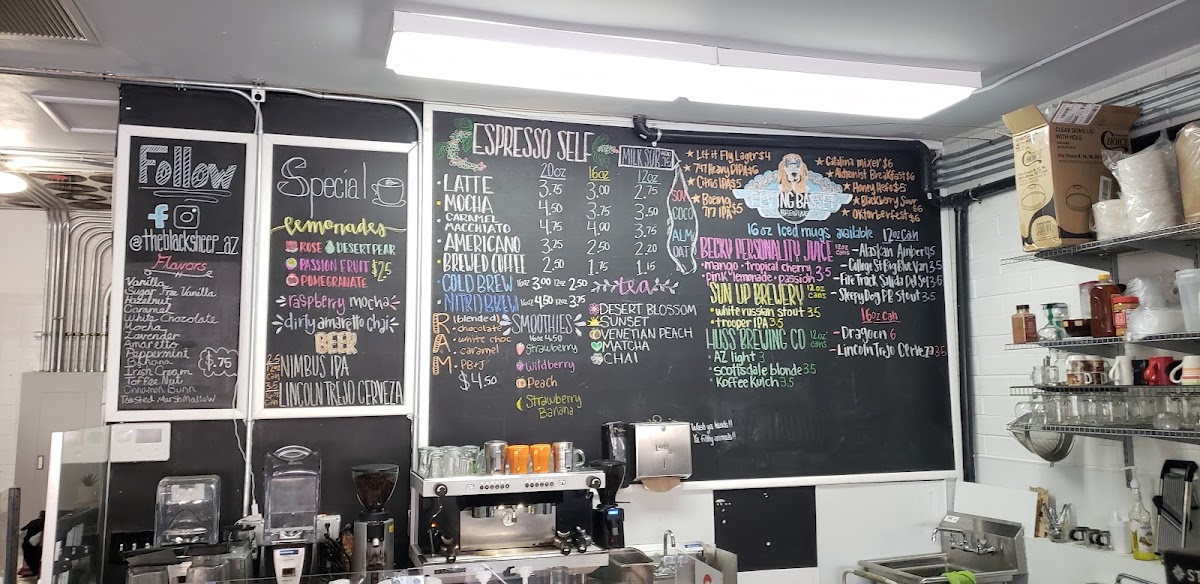 Follow
@theblacksheep_az
Flavors
Vanilla
Sugar Free Vanilla
Hazelnut
Caramel
White Chocolate
Mocha
Lavender
Amaretto
Peppermint
Irish Cream
Toffee Nut
Cinnamon Bunn
Toasted Marshmallow
$.75
Special
Lemonades
ROSE DESERT PEAR
PASSION FRUIT
POMEGRANATE
$2.5
raspberry mocha
dirty amaretto chai
BEER
NIMBUS IPA
LINCOLN TREJO CERVEZA
ESPRESSO SELF
20oz 16oz 12oz
LATTE 3.75 3.00 2.75
MOCHA 4.50 3.75 3.50
CARAMEL MACCHIATO 4.75 4.00 3.75
AMERICANO 3.25 2.50 2.20
BREWED COFFEE 2.50 1.75 1.15
COLD BREW 16oz 3.00 12oz 2.50
NITRO BREW 16oz 4.50 12oz 3.75
MILK SUB
SOY
COCO
ALM
OAT
RAM
(blended)
chocolate
white choc
caramel
PB+J
$4.50
SMOOTHIES
16oz 4.50
Strawberry
Wildberry
Peach
Strawberry
Banana
tea
DESERT BLOSSOM
SUNSET
VENETIAN PEACH
MATCHA
CHAI
Let it Fly Lager $4
747 Heavy DIPA $6
Citrus IPA $5
Boeing
717 IPA $5
FLYING BASSET
BREWING
Catalina mixer $6
Alchemist Breakfast $6
Honey Hefe $5
Blackberry Sour $6
Oktoberfest $6
16oz Iced mugs available
BECKY PERSONALITY JUICE 12oz cans
mango · tropical cherry
pink lemonade · passion 3.5
SUN UP BREWERY 12oz cans
white russian stout 3.5
trooper IPA 3.5
HUSS BREWING CO 12oz cans
AZ light 3
Scottsdale blonde 3.5
Koffee Kolsch 3.5
12oz Can
Alaskan Amber 4.5
College St Big Blue Van 3.5
Fire Truck Salida Del Sol 3.5
Sleepy Dog PB Stout 3.5
16oz Can
Dragoon 6
Lincoln Trejo Cerveza 3.5
Wash ya hands!!
Ya filthy animals!!
CLEAR DOME LID
WITH HOLE